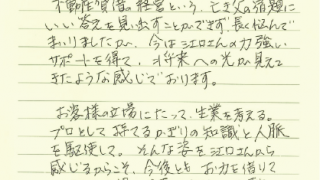 不動産賃借の経営という、亡き父の宿題に
いい答えを見出すことができず長く悩んで
まいりましたが、今は江口さんの力強い
サポートを得て、将来への光が見えて
きたような感じでおります。
お客様の立場にたって、生業を考える。
プロとして持てるかぎりの知識と人脈
を駆使して。そんな姿を江口さんから
感じるからこそ、今後ともお力を借りて